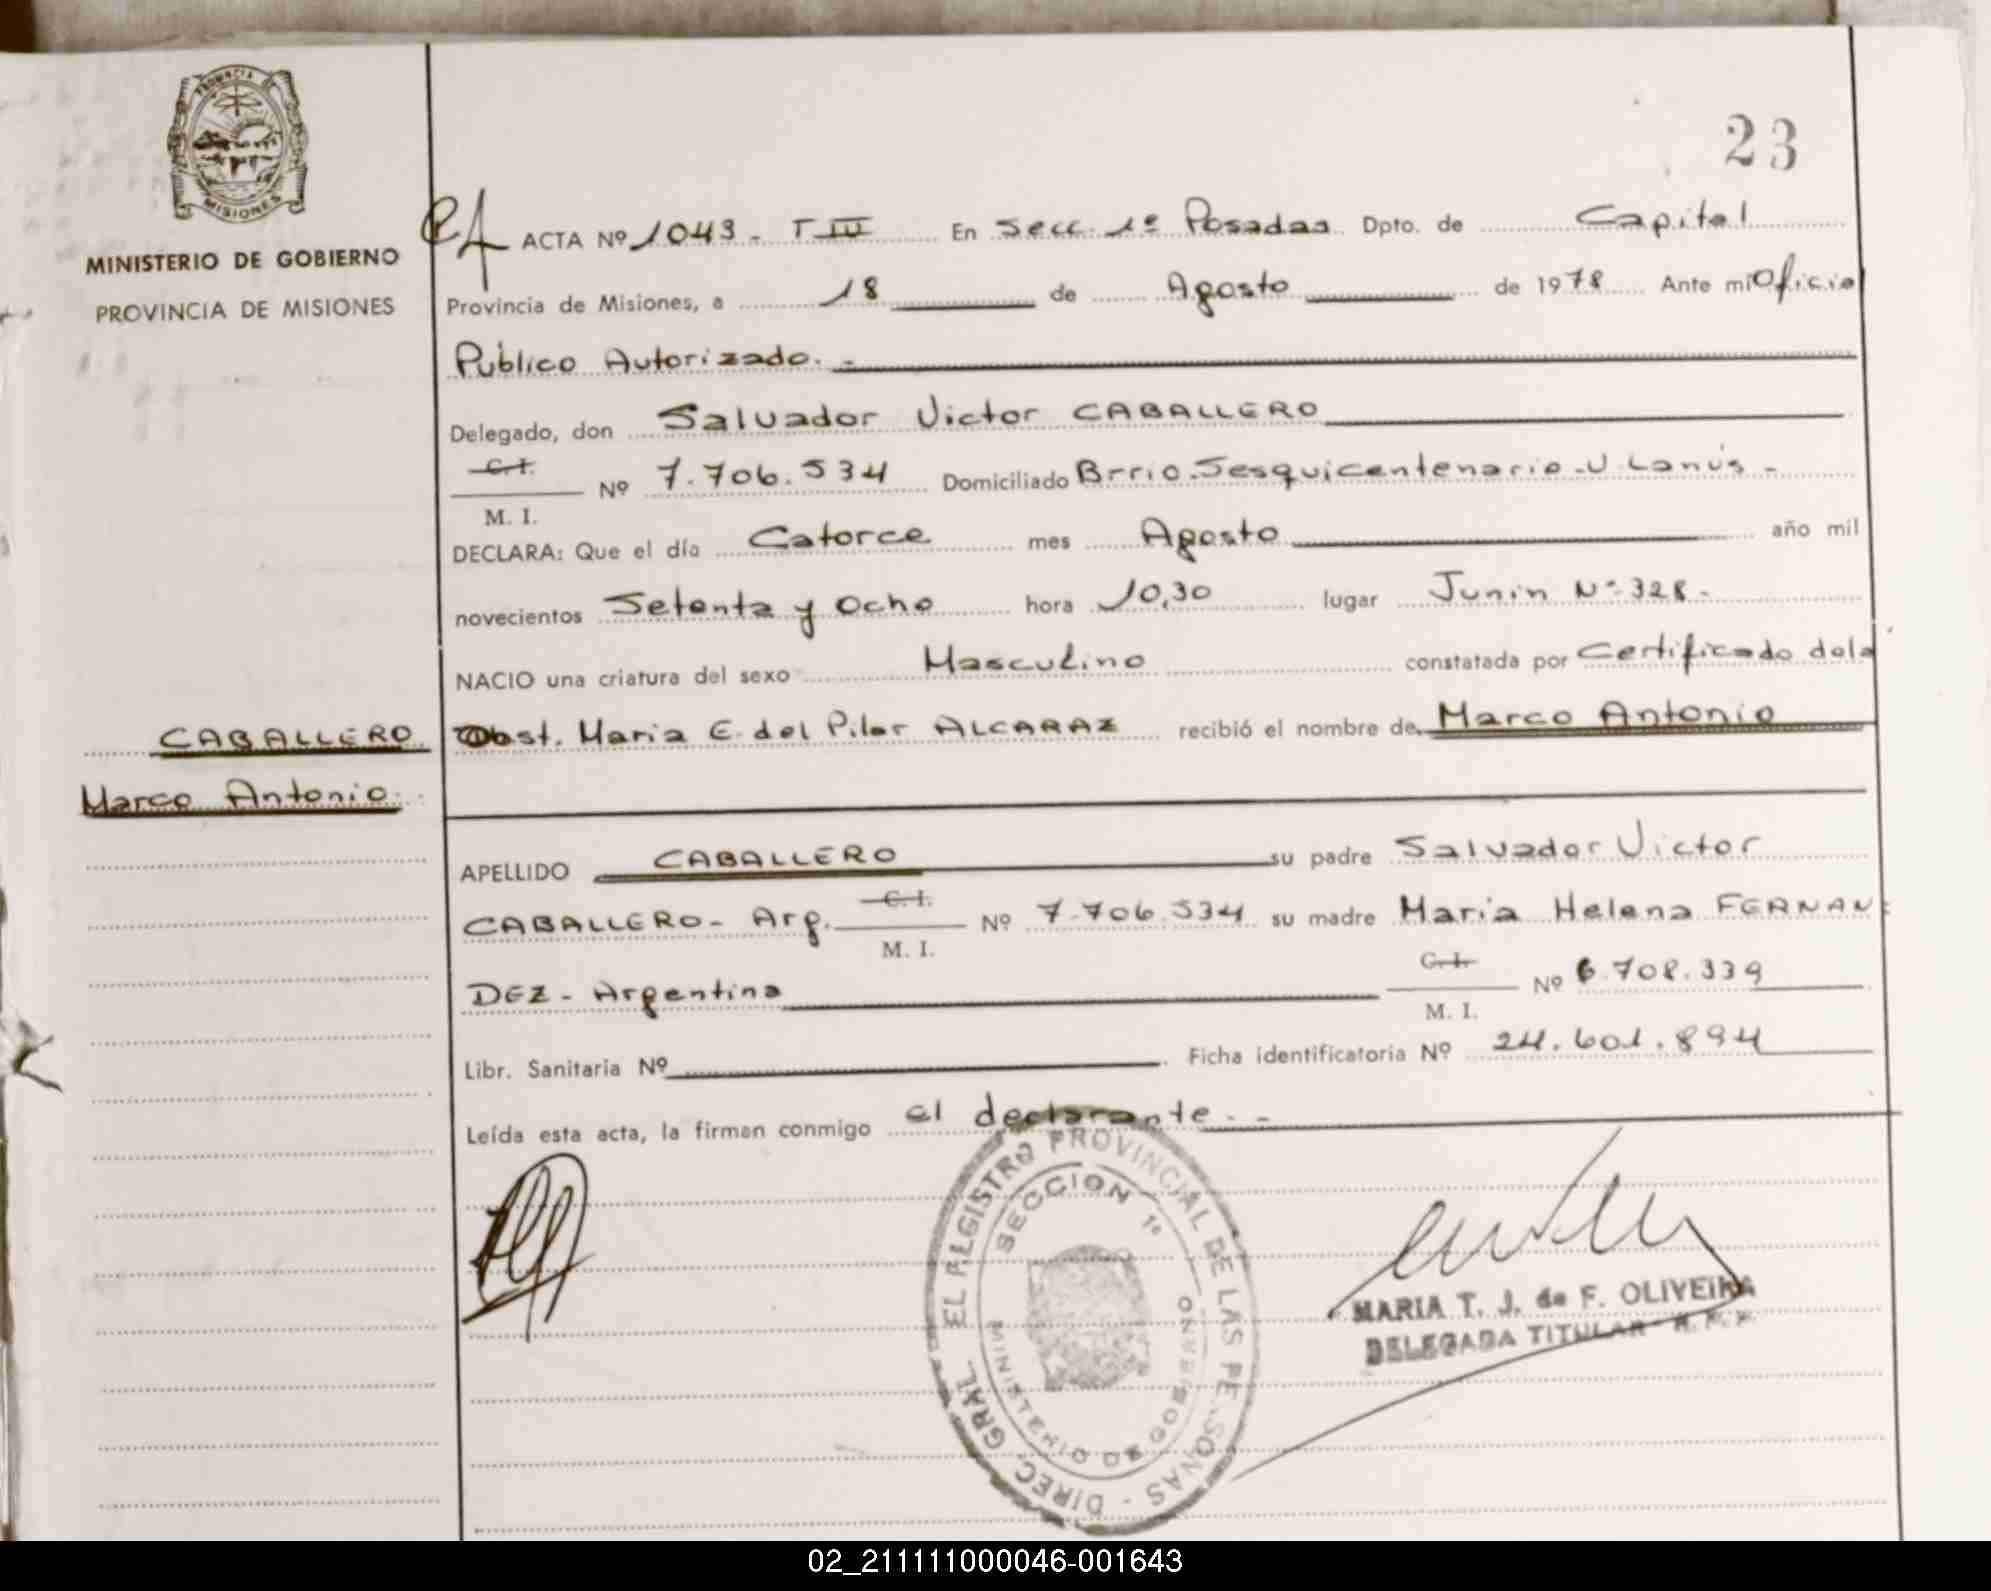 PROVINCIA DE
MISIONES
MINISTERIO DE GOBIERNO
PROVINCIA DE MISIONES
23
ACTA Nº 1043 - T IV En Secc. 1º Posadas Dpto. de Capital
Provincia de Misiones, a 18 de Agosto de 1978 Ante mi Oficio
Publico Autorizado. -
Delegado, don Salvador Victor CABALLERO
C. I.
Nº 7.706.534 Domiciliado Brrio. Sesquicentenario - V Lanús -
M. I.
DECLARA: Que el día Catorce mes Agosto año mil
novecientos Setenta y Ocho hora 10,30 lugar Junin Nº 328 -
NACIO una criatura del sexo Masculino constatada por Certificado dela
Obst. Maria E. del Pilar ALCARAZ recibió el nombre de Marco Antonio
CABALLERO
Marco Antonio
APELLIDO CABALLERO su padre Salvador Victor
CABALLERO - Arg. C. I. Nº 7.706.534 su madre Maria Helena FERNAN
M. I.
DEZ - Argentina C. I. Nº 6.708.339
M. I.
Libr. Sanitaria Nº Ficha identificatoria Nº 24.601.894
Leída esta acta, la firman conmigo el declarante. -
DIREC. GRAL. EL REGISTRO PROVINCIAL DE LAS PE.SONAS -
SECCION 1º
MINISTERIO DE GOBIERNO
MARIA T. J. de F. OLIVEIRA
DELEGADA TITULAR
02_211111000046-001643